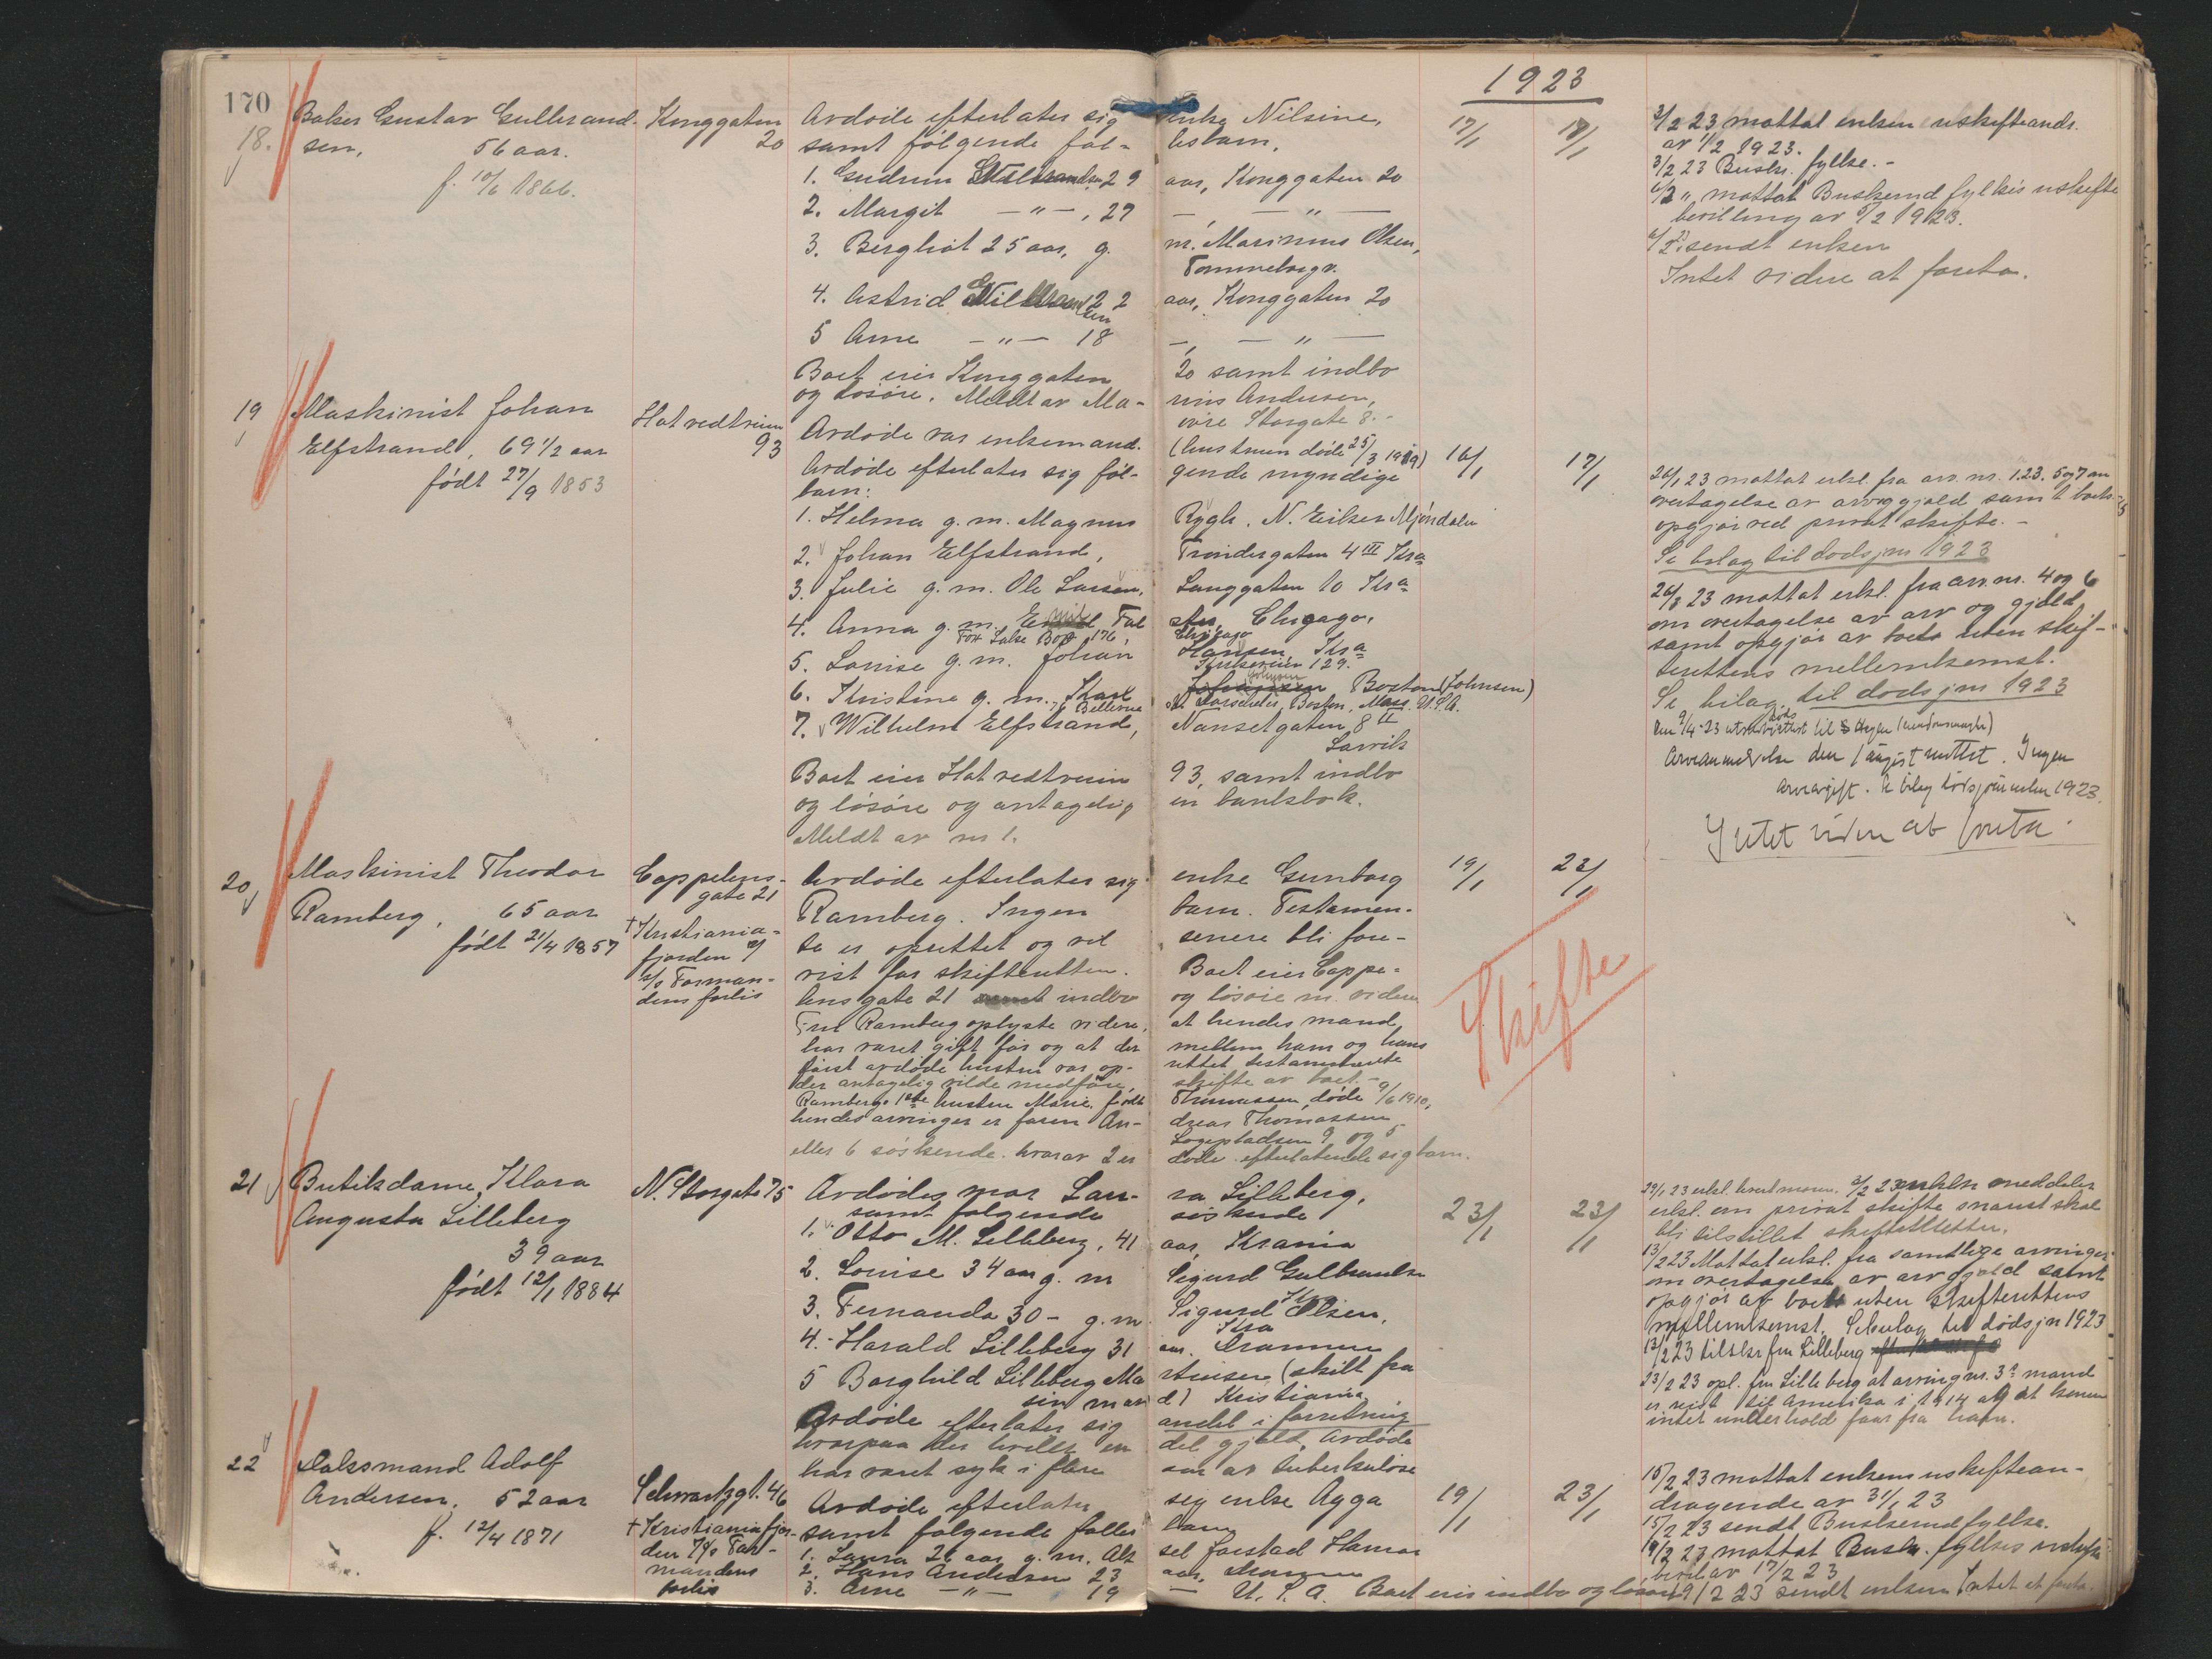 170
1923
18.
Baker Gustav Gulbrand-
sen, 56 aar.
f. 10/6 1866.
Konggaten
20
Avdøde efterlater sig enke Nilsine,
samt følgende fæl- lesbarn.
1. Gudrun Gulbrandsen 29 aar, Konggaten 20
2. Margit —"—, 27 — — " —
3. Bergliot 25 aar, g. m. Marinius Olsen,
Tømmeborgv.
4. Astrid 22 aar, Konggaten 20
5 Arne —"— 18 — — " —
Boet eier Konggaten 20 samt indbo
og løsøre. Meldt av Ma- rius Andersen,
øvre Storgate 8.-
17/1
18/1
3/2 23 mottat enken uskifteandr.
av 1/2 1923.
3/2 23 Buskr. fylke.-
6/2 " mottat Buskerud fylkes uskifte
bevilling av 5/2 1923.
sendt enken
Intet videre at foreta.
19
Maskinist Johan
Elfstrand, 69 1/2 aar
født 27/9 1853
Hotvedtveien
93
Avdøde var enkemand. (hustruen døde 25/3 1919)
Avdøde efterlater sig føl- gende myndige
barn:
1. Helma g. m. Magnus Rygh. N. Eiker Mjøndalen
2. Johan Elfstrand, Trondergaten 4 III Kra
3. Julie g. m. Ole Larsen, Langgaten 10 Kra
4. Anna g. m. Chicago.
5. Louise g. m. Johan Hansen, Kra
129.
6. Kristine g. m. Karl Boston (Johnsen)
Boston, Mass. U.S.A.
7. Wilhelm Elfstrand, Nansetgaten 8 II
Larvik
Boet eier Hotvedtveien 93, samt indbo
og løsøre og antagelig en bankbok.
Meldt av nr 1.
16/1
17/1
26/1 23 mottat erkl. fra arv. nr. 1.23. 5og7 om
overtagelse av arvoggjæld samt boets
opgjør ved privat skifte.-
Se bilag til dødsjrn 1923
26/3 23 mottat erkl. fra arv. nr. 4 og 6
om overtagelse av arv og gjæld
samt opgjør av boet uten skif-
terettens mellemkomst.
Se bilag til dødsjrn 1923
Arveanmeldelse den 1 august mottat. Ingen
arveavgift. Se bilag dødsjournalen 1923.
Intet videre at foreta.
20
Maskinist Theodor
Ramberg, 65 aar
født 21/4 1857
Cappelens-
gate 21
† Kristiania-
fjorden v/
s/s Forman-
dens forlis
Avdøde efterlater sig enke Gunborg
Ramberg. Ingen barn. Testamen-
te er oprettet og vil senere bli fore-
vist for skifteretten. Boet eier Cappe-
lensgate 21 samt indbo og løsøre m. videre
Fru Ramberg oplyste videre, at hendes mand
har været gift før og at der mellem ham og hans
først avdøde hustru var op- rettet testamente
der antagelig vilde medføre, skifte av boet.-
Rambergs 1ste hustru Marie, født Thomassen, døde 9/6 1910,
hendes arvinger er faren An- dreas Thomassen
Logepladsen 9, og 5
eller 6 søskende. hvorav 2 er døde efterlatende sig barn.
19/1
23/1
Skifte
21
Butiksdame Klara
Augusta Lilleberg
39 aar
født 12/1 1884
N. Storgate 75
Avdødes mor Lau- ra Lilleberg,
samt følgende søskende
1. Otto M. Lilleberg, 41 aar, Krania
2. Louise 34 aar g. m Sigurd Gulbrandsen
Kra
3. Fernanda 30 - g. m. Sigurd Olsen,
Kra
4.- Harald Lilleberg 31 aar. Drammen
5 Borghild Lilleberg Ma rtinsen (skilt fra
sin man d) Kristiania
Avdøde efterlater sig andel i forretning
hvorpaa der hviler en del gjæld, Avdøde
har været syk i flere aar av tuberkulose
23/1
23/1
erkl. om privat skifte snarest skal
bli tilstillet skifteretten.
13/2 23 Mottat erkl. fra samtlige arvinger
om overtagelse av arv gjæld samt
opgjør av boet uten skifterettens
mellemkomst. Se bilag til dødsjrn 1923
13/2 23 tilskr fru Lilleberg
23/2 23 opl. fru Lilleberg at arving nr. 3s mand
er reist til Amerika i 1914 og at henne
intet underhold faar fra ham.
22
Dæksmand Adolf
Andersen. 52 aar
f. 12/4 1871
Schwartzgt. 46
† Kristianiafjor-
den v/s/s For-
mandens
forlis
Avdøde efterlater sig enke Agga
samt følgende fælles barn
1. Laura 26 aar g. m. Hamar
2. Hans Andersen 23 aar, Drammen
3. Arne —"— 19 — U. S. A. Boet eier indbo og løsøre
19/1
23/1
15/2 23 mottat enkens uskiftean-
dragende av 31/1 23
15/2 23 sendt Buskerud fylke.
19/2 23 mottat Busk. fylkes uskifte
bevil av 17/2 23
19/2 23 sendt enken Intet at foreta.